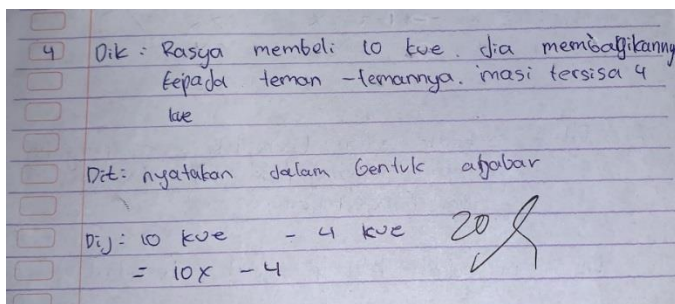 4 Dik : Rasya membeli 10 kue. dia membagikanny
kepada teman - temannya. masi tersisa 4
kue
Dit : nyatakan dalam bentuk aljabar
Dij : 10 kue - 4 kue 20
= 10x - 4